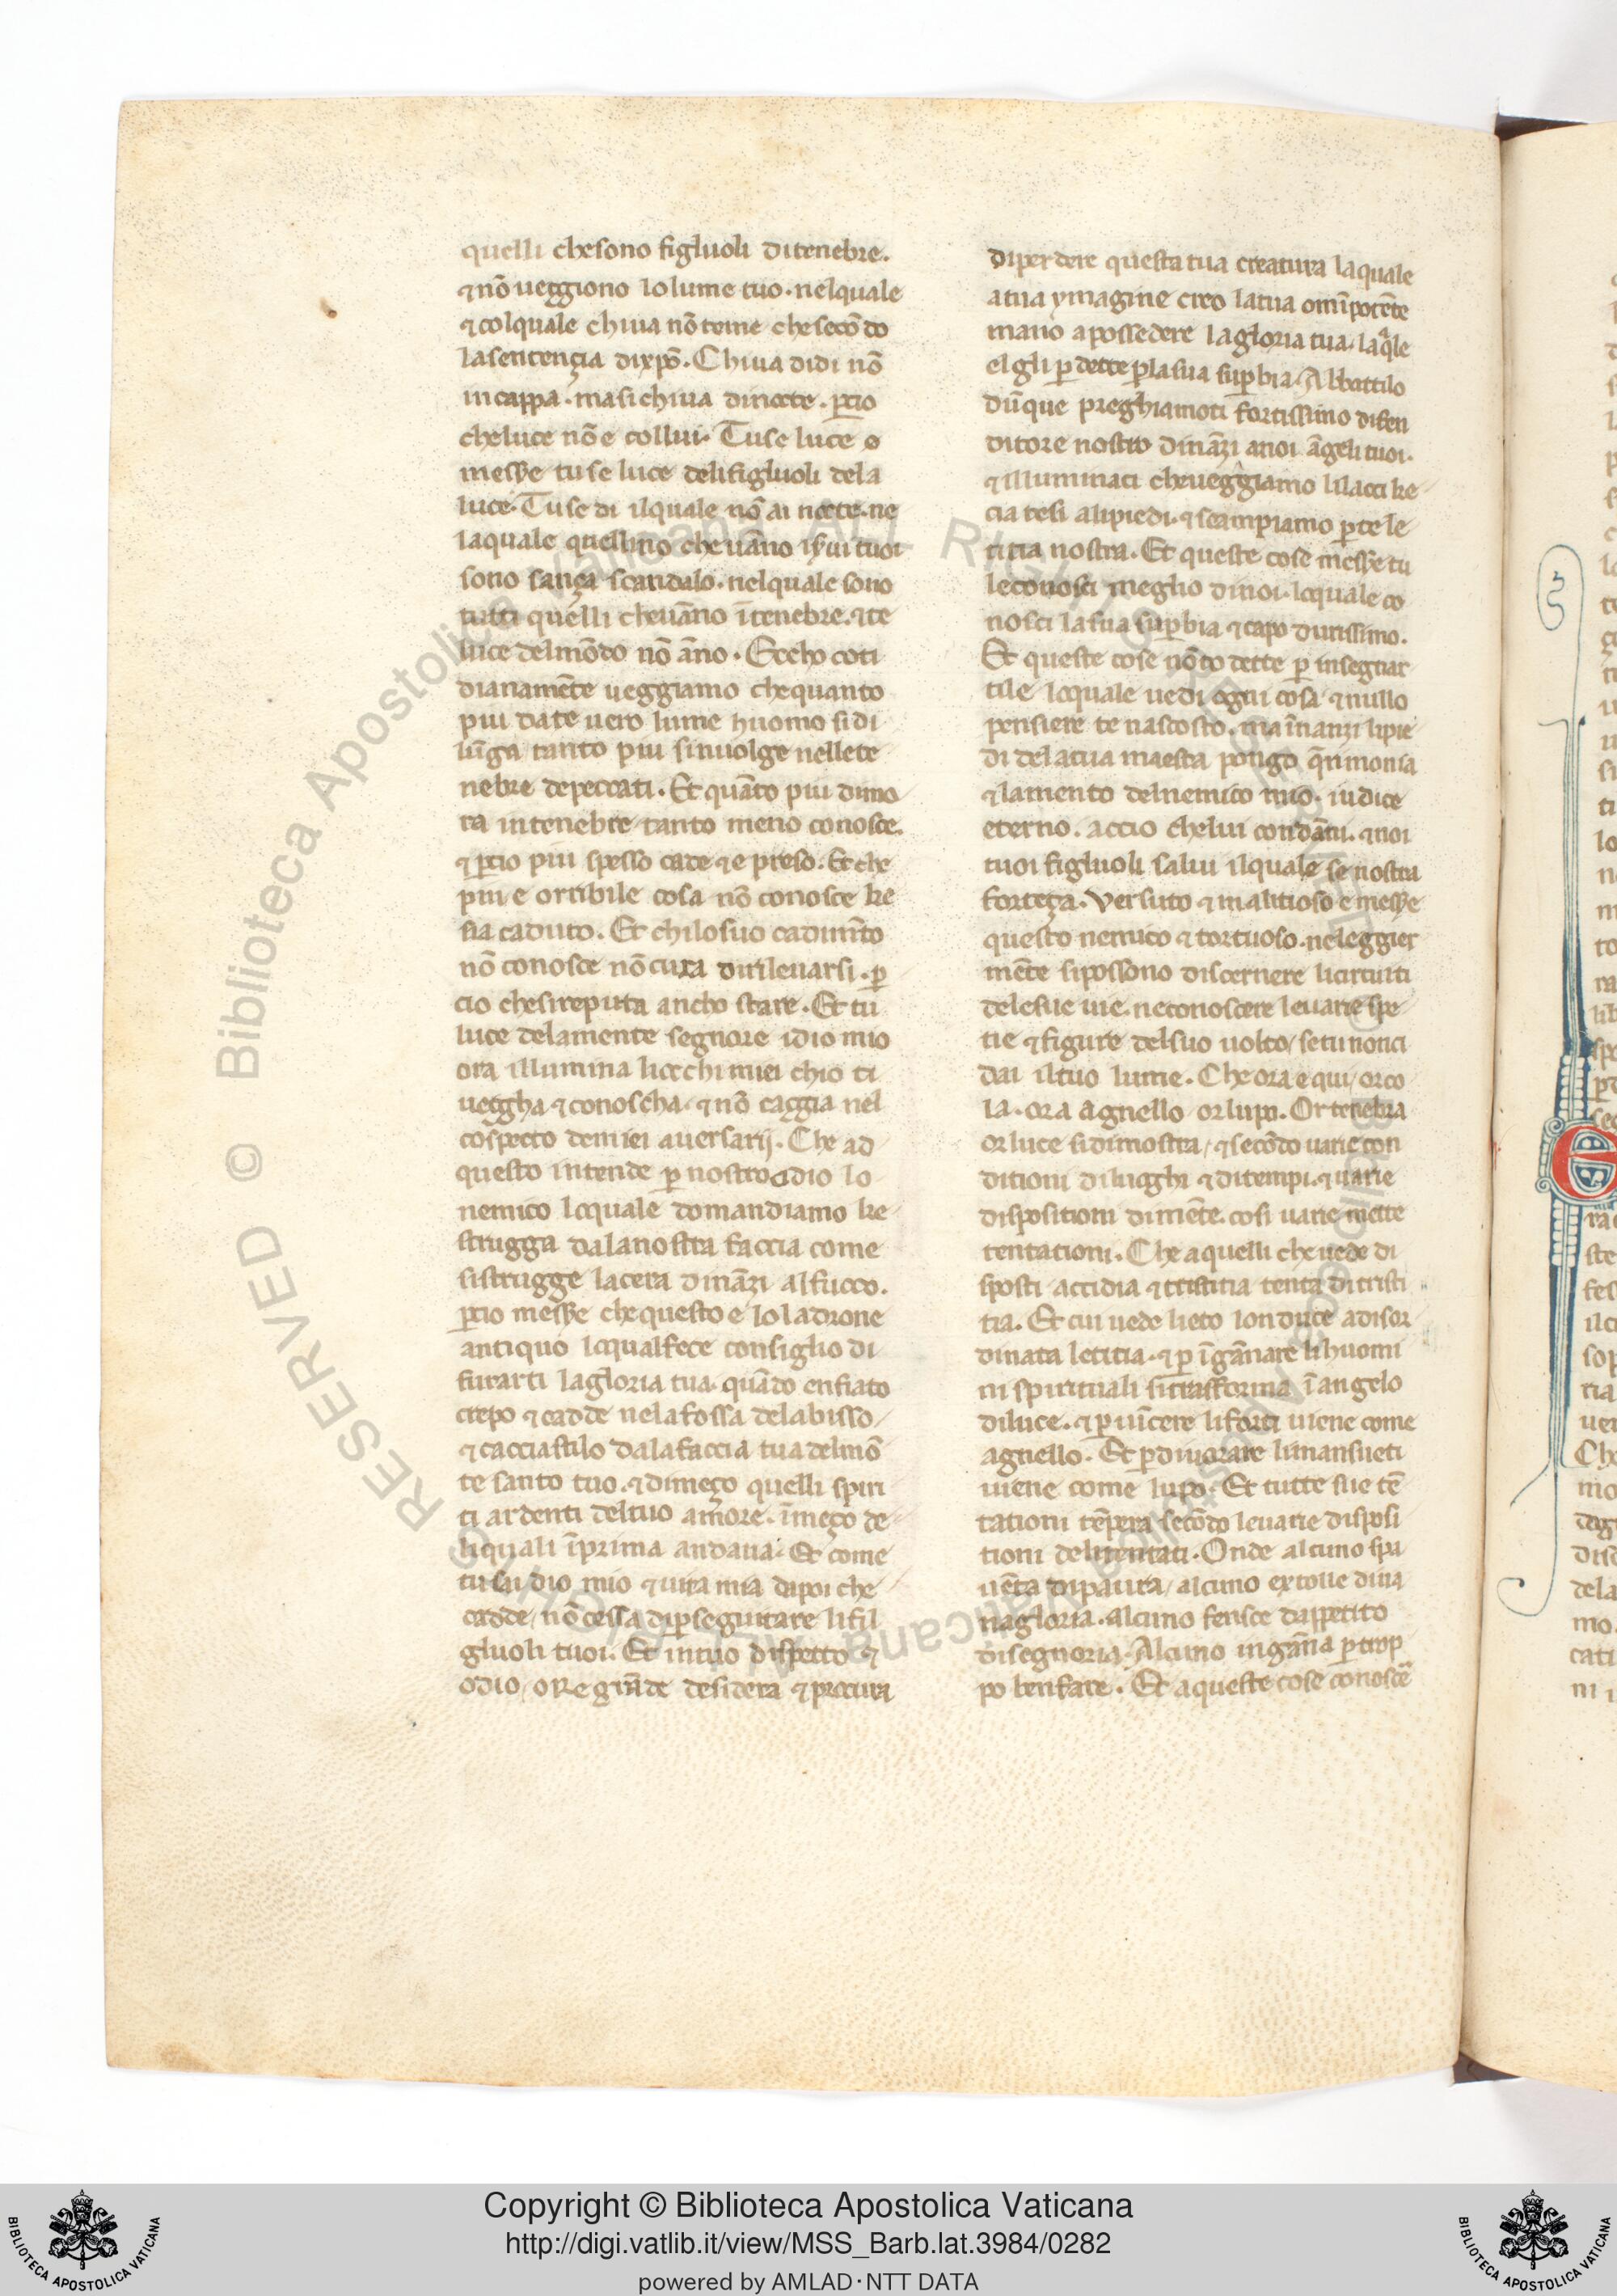 quelli chesono figluoli ditenebre.
⁊ nō ueggiono lolume tuo · nelquale
⁊ colquale chiua nō teme che secōdo
lasentençia dixp̄o. Chiua didi nō
incappa · ma sichiua dinocte . p̱cio
cheluce nō e collui. Tu se luce o
messe tu se luce delifigluoli dela
luce. Tu se di ilquale nō ai nocte. ne
laquale quelli no che uāno
sono sança scandalo. nelquale sono
tutti quelli cheuāno ītenebre. ⁊ te
luce delmōdo nō āno. Eccho coti
dianamēte ueggiamo chequanto
piu date uero lume huomo sidi
lūga tanto piu sinuolge nellete
nebre depeccati. Et quāto piu dimo
ra intenebre tanto meno conosce.
⁊ p̱cio piu spesso cade ⁊ e preso. Et che
piu e orribile cosa nō conosce ke
sia caduto. Et chilosuo cadimēto
nō conosce nō cura dirileuarsi . p̱
cio chesireputa ancho stare. Et tu
luce delamente segnore idio mio
ora illumina liocchi miei chio ti
ueggha ⁊ conoscha. ⁊ nō caggia nel
cospecto demiei auersarij. Che ad
questo intende p̱ nostro odio lo
nemico loquale domandiamo ke
strugga dalanostra faccia come
sistrugge lacera dināzi alfuoco.
p̱cio messe che questo e lo ladrone
antiquo loqualfece consiglio di
furarti lagloria tua. quādo enfiato
crepo ⁊ cadde nela fossa delabisso
⁊ cacciastilo dalafaccia tua delmō
te santo tuo. ⁊ dimeço quelli spiri
ti ardenti deltuo amore. īmeço de
liquali īprima andaua. Et come
tu sai dio mio ⁊ uita mia dapoi che
cadde, nō cessa dip̱seguitare li fil
gluoli tuoi. Et intuo dispetto ⁊
odio, o Re grāde desidera ⁊ procura
diperdere questa tua creatura laquale
atua ymagine creo latua omīpotēte
mano apossedere lagloria tua. laq̄le
elgli p̱dette p̱lasua sup̱bia. Abbattilo
dūque preghiamoti fortissimo difen
ditore nostro dināzi anoi āgeli tuoi.
⁊ illuminaci cheueggiamo lilacci ke
cia tesi alipiedi. ⁊ scampiamo p̱ te le
titia nostra. Et queste cose messe tu
leconosci meglio dinoi. loquale co
nosci lasua sup̱bia ⁊ capo durissimo.
Et queste cose nō to dette p̱ insegnar
tile loquale uedi ogni cosa ⁊ nullo
pensiere te nascosto. ma īnanzi lipie
di delatua maesta pongo q̄rimonia
⁊ lamento delnemico mio. iudice
eterno . accio chelui condāni. ⁊ noi
tuoi figluoli salui ilquale se nostra
forteça. Versuto ⁊ malitioso e messe
questo nemico ⁊ tortuoso. neleggier
mēte sipossono discernere licircuiti
delesue uie. neconoscere leuarie spe
tie ⁊ figure delsuo uolto, setu nonci
dai iltuo lume. Che ora e qui, or co
la. ora agnello or lupo. Or tenebra
or luce sidimostra, ⁊ secōdo uarie con
ditioni diluoghi ⁊ ditempi. ⁊ uarie
dispositioni dimēte. cosi uarie mette
tentationi. Che aquelli che uede di
sposti accidia ⁊ tristitia tenta ditristi
tia. Et cui uede lieto londuce adisor
dinata letitia. ⁊ p̱ īgānare li huomi
ni spirituali sitrasforma ī angelo
diluce. ⁊ p̱ uīcere liforti uiene come
agnello. Et p̱ diuorare limansueti
uiene come lupo. Et tutte sue tē
tationi tēpera secōdo leuarie disposi
tioni delitentati. Onde alcuno spa
uēta dipaura, alcuno extolle diua
nagloria. Alcuno ferisce dappetito
disegnoria. Alcuno ingāna p̱ trop
po benfare. Et aqueste cose conoscē
Copyright © Biblioteca Apostolica Vaticana
http://digi.vatlib.it/view/MSS_Barb.lat.3984/0282
powered by AMLAD · NTT DATA
BIBLIOTECA APOSTOLICA VATICANA
BIBLIOTECA APOSTOLICA VATICANA